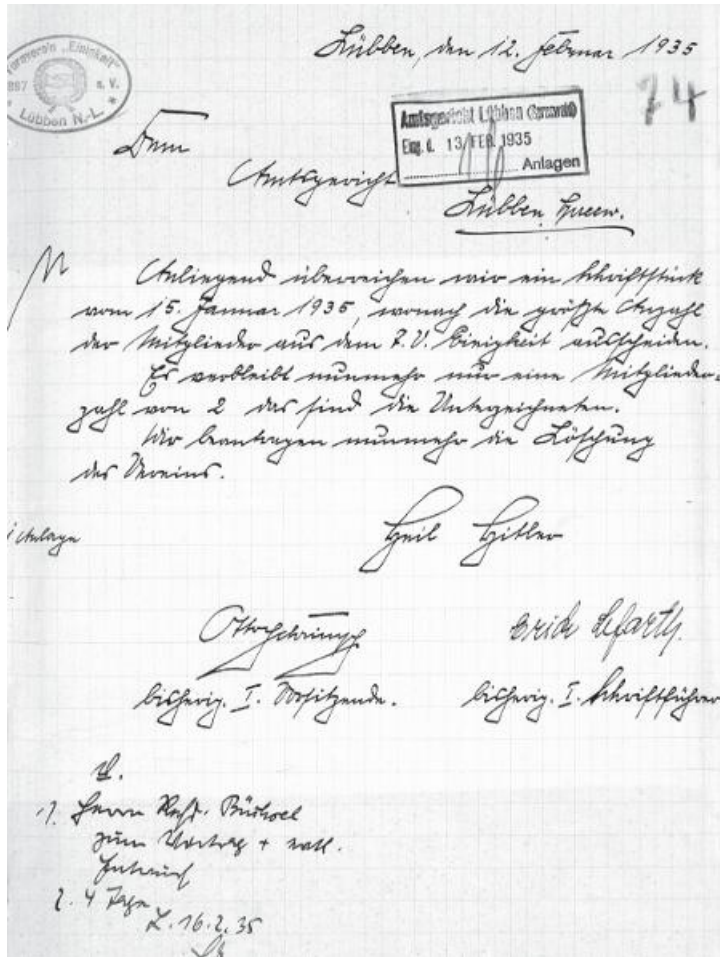 Lübben, den 12. Februar 1935
Turnverein „Einigkeit"
e. V.
Lübben N.-L.
74
Amtsgericht Lübben (Spreewald)
Eing. d. 13. FEB. 1935
Anlagen
Dem
Amtsgericht
Lübben Spreew.
Anliegend überreichen wir ein Schriftstück
vom 15. Januar 1935, wonach die größte Anzahl
der Mitglieder aus dem T.V. Einigkeit ausscheiden.
Es verbleibt nunmehr nur eine Mitglieder-
zahl von 2 das sind die Unterzeichneten.
Wir beantragen nunmehr die Löschung
des Vereins.
Anlage
Heil Hitler
Otto
Erich
bisherig. I. Vorsitzende.
bisherig. I. Schriftführer
1. Herrn
zum Vortrag + evtl.
2. 4 Tage
L. 16.2.35